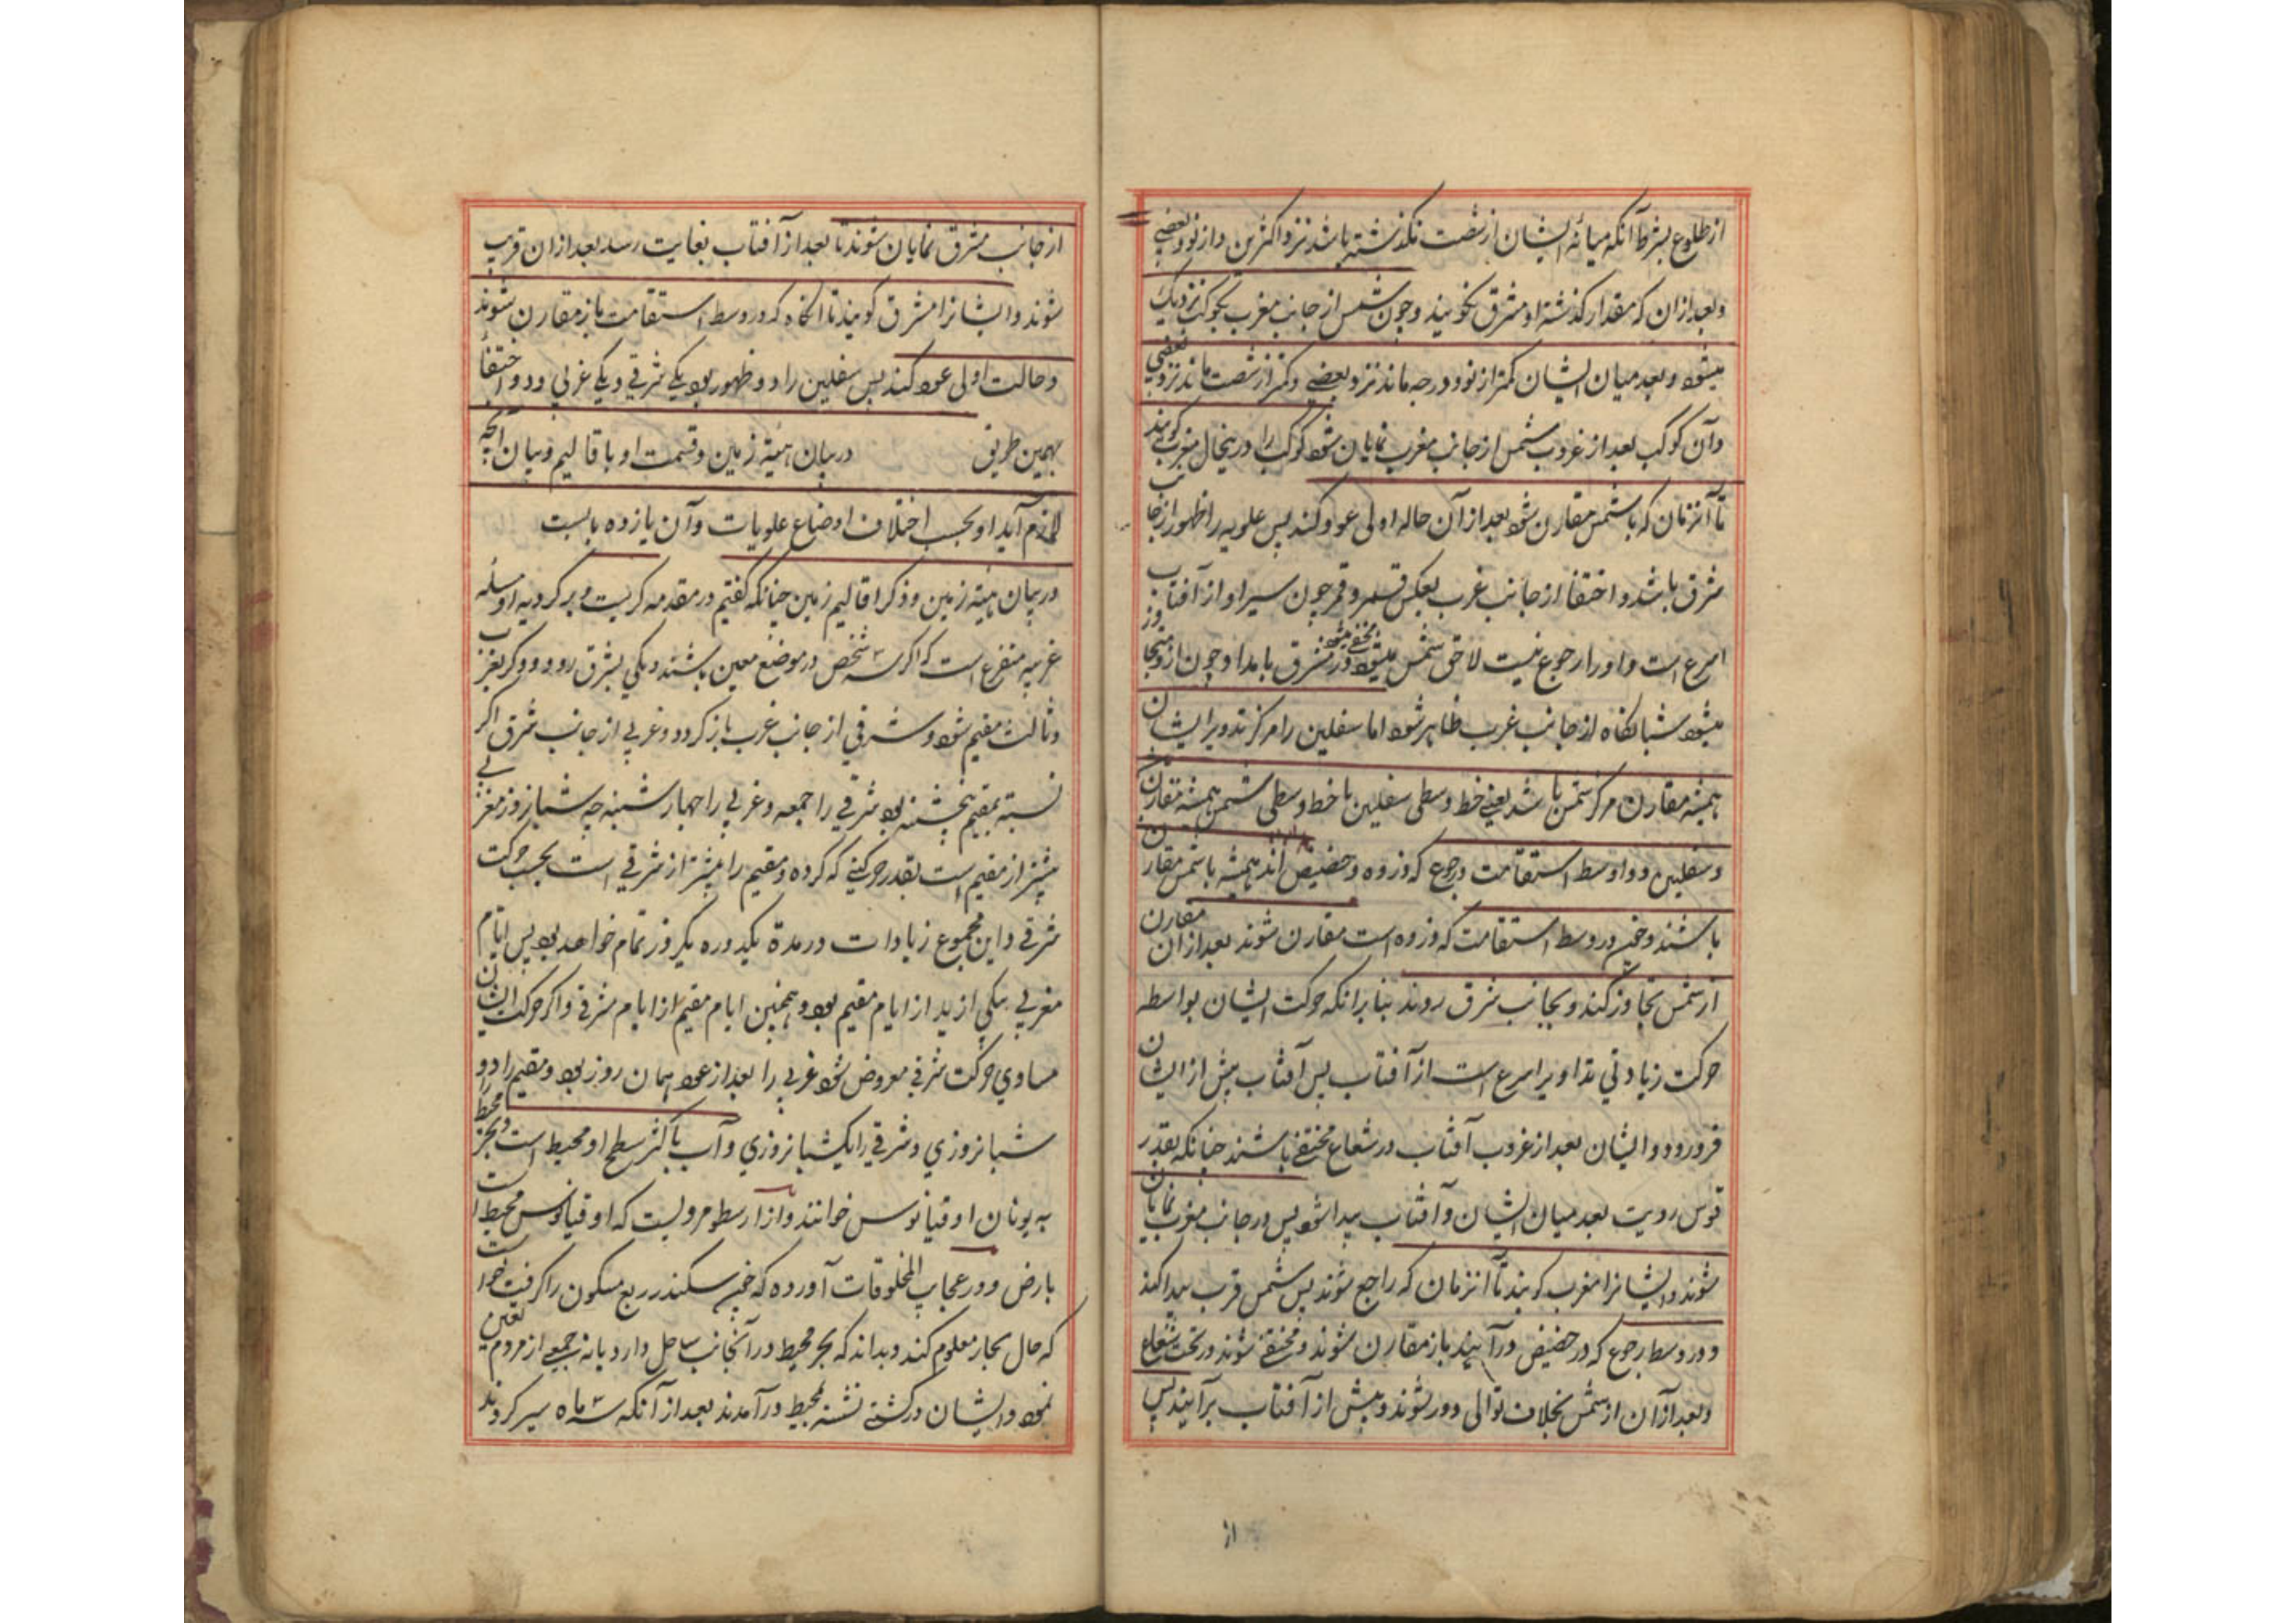 از طلوع بشرط آنکه میانه ایشان از شصت نکذشته باشد نزد اکثرین و از نود نزد بعضی
و بعد از ان که مقدار کذشته او مشرق نخوانند و چون شمس از جانب مغرب بکوکب نزدیک
میشود و بعد میان ایشان کمتر از نود درجه ماند نزد بعضی و کمتر از شصت ماند نزد بعضی
و آن کوکب بعد از غروب شمس از جانب مغرب نمایان شود کوکب را درینحال مغرب کویند
تا آنزمان که با شمس مقارن شود بعد از آن حاله اولی عود کند پس علویه را ظهور از جانب
مشرق باشد و اختفا از جانب غرب بعکس قمر و قمر چون سیر او از آفتاب
اسرع است و او را رجوع نیست لاحق شمس میشود مخفی میشود در مشرق بامداد و چون از و متجاوز
میشود شبانکاه از جانب غرب ظاهر شود اما سفلیین را مرکز تدویر ایشان
همیشه مقارن مرکز شمس باشد یعنی خط وسطی سفلیین با خط وسطی شمس همیشه مقارن
و سفلیین در اوسط استقامت و رجوع که ذروه و حضیض اند همیشه با شمس مقارن
باشند و چون در وسط استقامت که ذروه است مقارن شوند بعد از ان مقارن
از شمس تجاوز کنند و بجانب شرق روند بنا برانکه حرکت ایشان بواسطه
حرکت زیادتی تداویر اسرع است از آفتاب پس آفتاب پیش از ایشان
فرو رود و ایشان بعد از غروب آفتاب در شعاع مختفی باشند چنانکه بقدر
قوس رویت بعد میان ایشان و آفتاب پیدا شود پس در جانب مغرب نمایان
شوند و ایشانرا مغرب کویند تا آنزمان که راجع شوند پس شمس قرب پیدا کند
و در وسط رجوع که در حضیض درآیند باز مقارن شوند و مختفی شوند در تحت شعاع
و بعد از آن از شمس بخلاف توالی دور شوند و پیش از آفتاب برآیند پس
از
از جانب مشرق نمایان شوند تا بعد از آفتاب بغایت رسد بعد از ان قریب
شوند و ایشانرا مشرق کویند تا انکاه که در وسط استقامت باز مقارن شوند
و حالت اولی عود کند پس سفلیین را دو ظهور بود یکی شرقی و یکی غربی و دو اختفا
بهمین طریق در بیان هیئة زمین و قسمت او باقالیم و بیان آنچه
لازم آید او بحسب اختلاف اوضاع علویات و آن یازده بابست
در بیان هیئة زمین و ذکر اقالیم زمین چنانکه کفتیم در مقدمه کریست و بر کردیه او مسئله
غریبه متفرع است که اکر سه شخص در موضع معین باشند و یکی بشرق رود و دوکر بغرب
و ثالث مقیم شود و شرقی از جانب غرب باز کردد و غربی از جانب شرق اکر
نسبة بمقیم پنجشنبه بود شرقی را جمعه و غربی را چهارشنبه چه شبانروز مغربی
بیشتر از مقیم است بقدر حرکتی که کرده و مقیم را بیشتر از شرقی است بحسب حرکت
شرقی و این مجموع زیادات در مدة یکدوره یکروز تمام خواهد بود پس ایام
مغربی بیکی ازید از ایام مقیم بود و همچنین ایام مقیم از ایام شرقی و اکر حرکت ایشان
مساوی حرکت شرقی معروض شود غربی را بعد از عود همان روز بود و مقیم را دو
شبانروزی و شرقی را یکشبانروزی و آب باکثر سطح او محیط است و بحر محیط را
به یونان اوقیانوس خوانند و از ارسطو مرویست که اوقیانوس محیط است
بارض و در عجایب المخلوقات آورده که چون سکندر ربع مسکون را کرفت خواست
که حال بحار معلوم کند و بداند که بحر محیط در آنجانب ساحل دارد یا نه جمعی از مردم تعین
نمود و ایشان در کشتی نشسته بمحیط درآمدند بعد از آنکه سه ماه سیر کردند